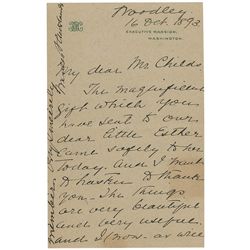 Woodley.
16 Oct. 1893
EXECUTIVE MANSION,
WASHINGTON.
My dear Mr Childs
The magnificent
gift which you
have sent to our
dear little Esther
came safely to her
today. And I want
to hasten to thank
you. The things
are very beautiful
and very useful.
and I know as well